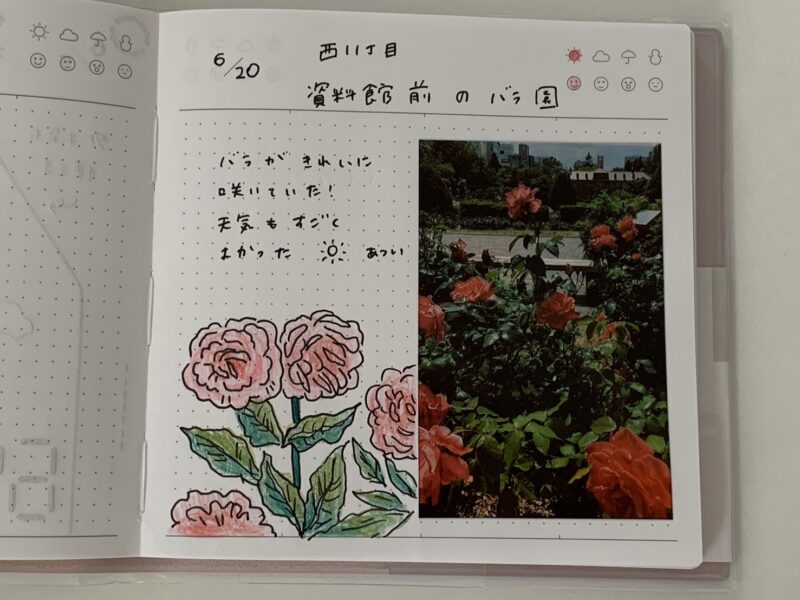 6/20
西11丁目
資料館前のバラ園
バラがきれいに
咲いていた!
天気もすごく
よかった あつい